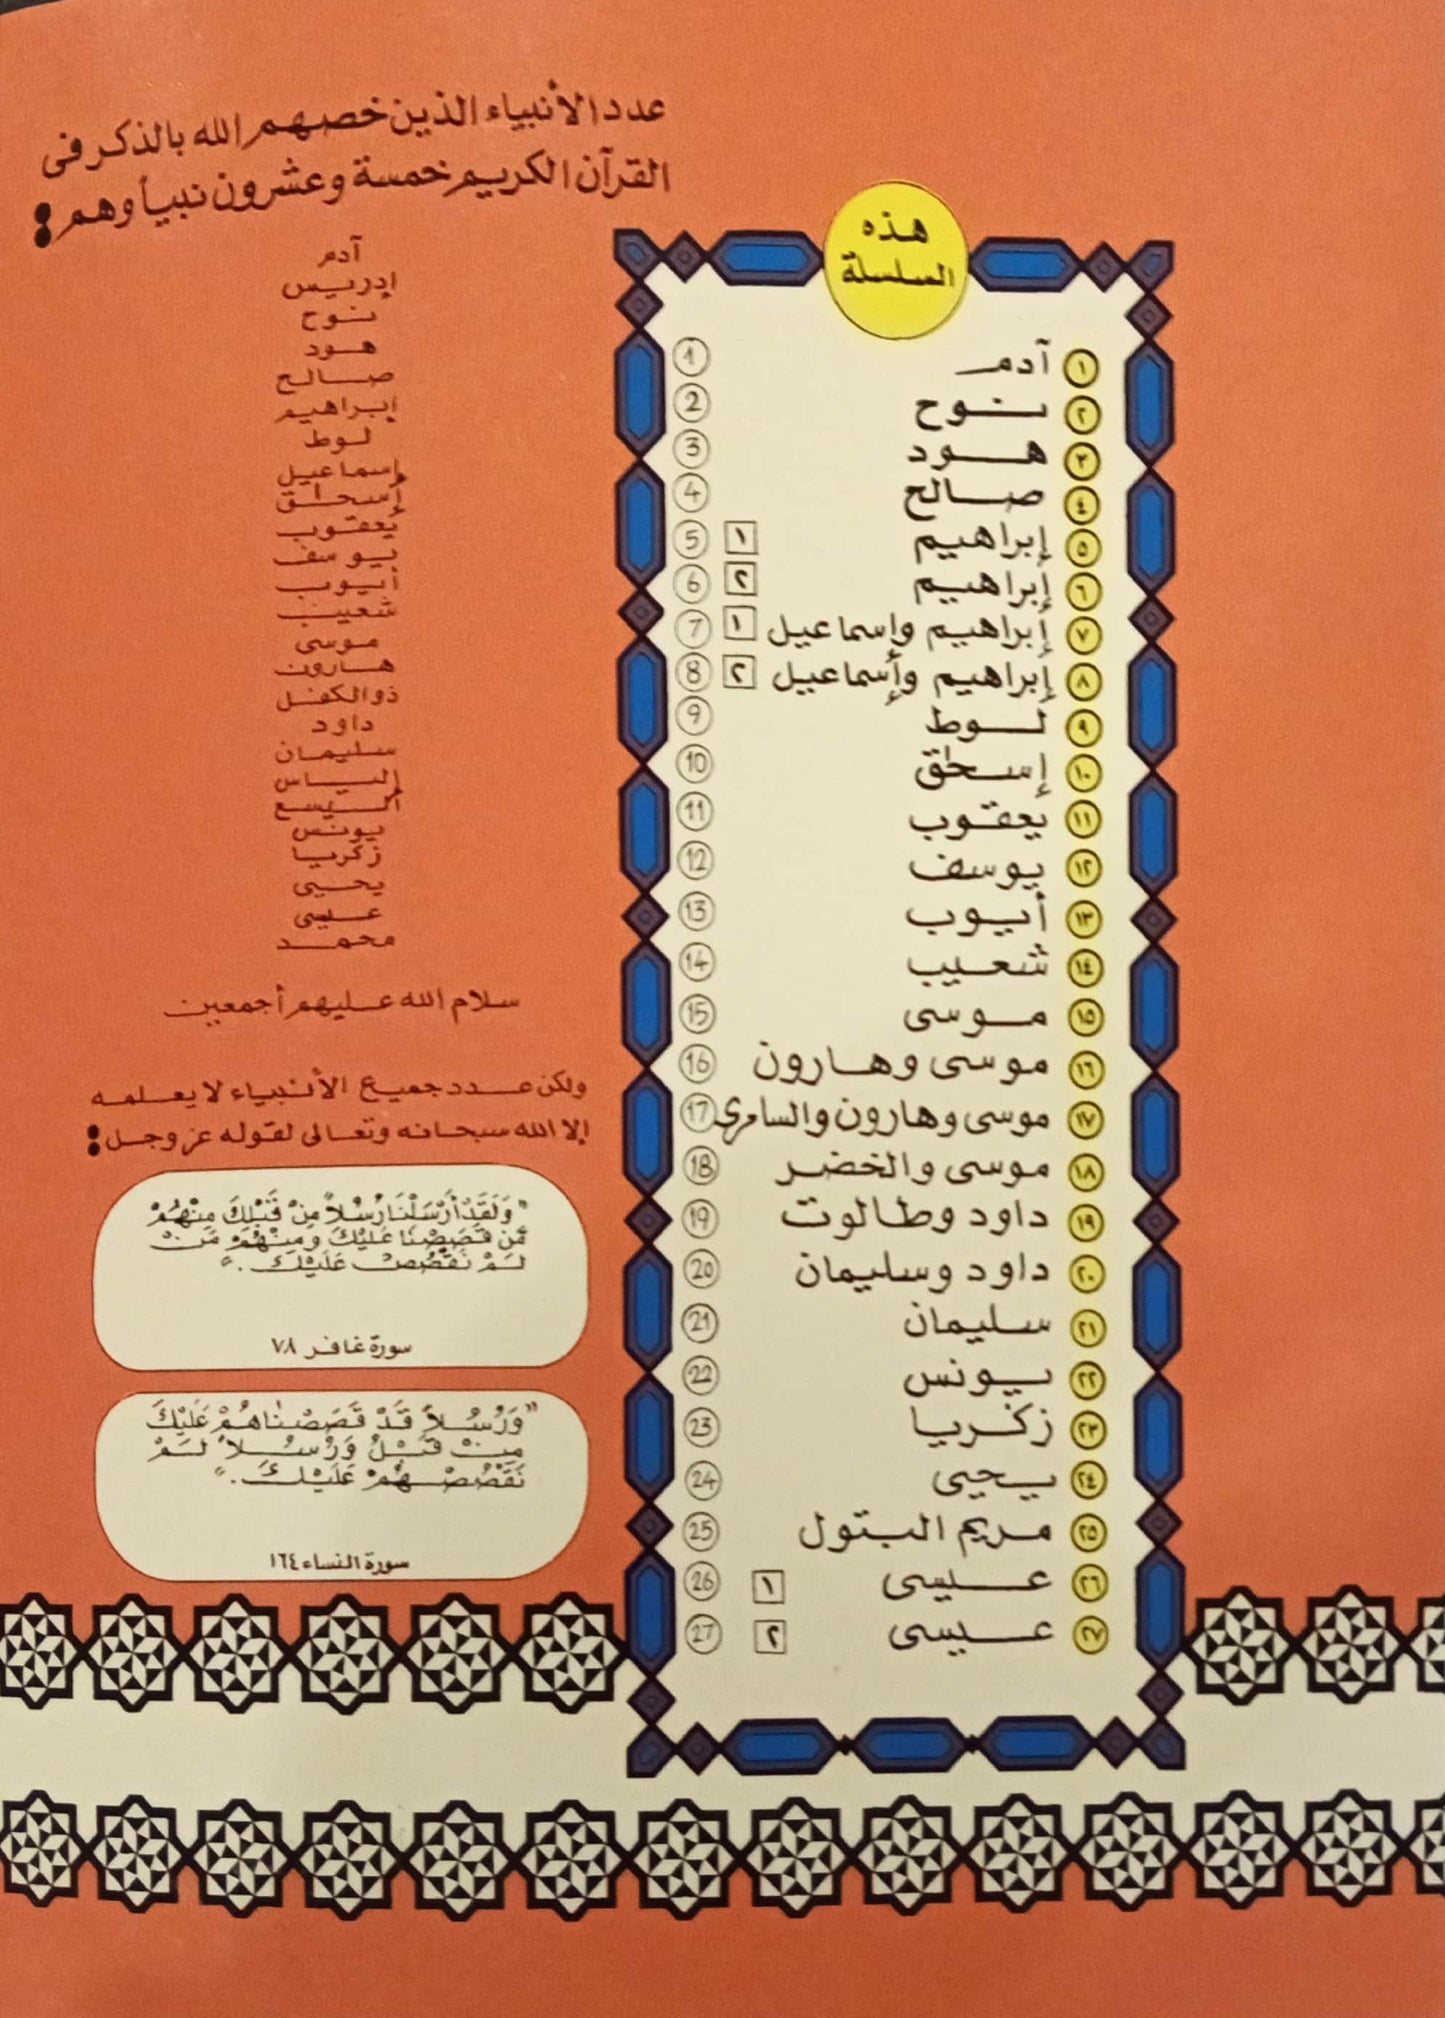 عدد الأنبياء الذين خصهم الله بالذكر فى
القرآن الكريم خمسة وعشرون نبيأ وهم :
آدم
إدريس
نوح
هود
صالح
إبراهيم
لوط
إسماعيل
إسحاق
يعقوب
يوسف
أيوب
شعيب
موسى
هارون
ذو الكفل
داود
سليمان
إلياس
أليسع
يونس
زكريا
يحيى
عيسى
محمد
سلام الله عليهم أجمعين
ولكن عدد جميع الأنبياء لا يعلمه
إلا الله سبحانه وتعالى لقوله عز وجل :
"وَلَقَدْ أَرْسَلْنَا رُسُلاً مِنْ قَبْلِكَ مِنْهُمْ
مَّن قَصَصْنَا عَلَيْكَ وَمِنْهُمْ مَنْ
لَمْ نَقْصُصْ عَلَيْكَ ."
سورة غافر ٧٨
"وَرُسُلاً قَدْ قَصَصْنَاهُمْ عَلَيْكَ
مِنْ قَبْلُ وَرُسُلاً لَمْ
نَقْصُصْهُمْ عَلَيْكَ ."
سورة النساء ١٦٤
هذه
السلسلة
١ آدم 1
٢ نوح 2
٣ هود 3
٤ صالح 4
٥ إبراهيم ١ 5
٦ إبراهيم ٢ 6
٧ إبراهيم وإسماعيل ١ 7
٨ إبراهيم وأسماعيل ٢ 8
٩ لوط 9
١٠ إسحٰق 10
١١ يعقوب 11
١٢ يوسف 12
١٣ أيوب 13
١٤ شعيب 14
١٥ موسى 15
١٦ موسى وهارون 16
١٧ موسى وهارون والسامرى 17
١٨ موسى والخضر 18
١٩ داود وطالوت 19
٢٠ داود وسليمان 20
٢١ سليمان 21
٢٢ يونس 22
٢٣ زكريا 23
٢٤ يحيى 24
٢٥ مريم البتول 25
٢٦ عيسى ١ 26
٢٧ عيسى ٢ 27